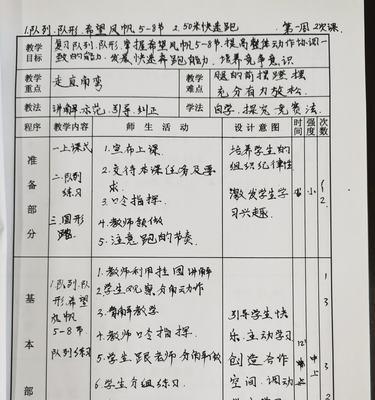 1.队列.队形.希望风帆5-8节 2.50米快速跑 第一周2次课.
教学目标
复习队列.队形.掌握希望风帆5-8节.提高整体动作协调一
致的能力.发展快速奔跑能力.培养竞争意识
教学重点
走直角弯
教学难点
腿的前摆蹬摆
充分有力放松.
教法
讲解示范.引导.纠正
学法
自学.探究.竞赛法
程序 教学内容 师生活动 设计意图 时间 强度 次数
准备部分
一.上课式
二.队列
练习
三.图形
跑.
1.宣布上课
2.交待本课任务及要
求.
3.口令指挥.
4.教师领做
5.注意跑的节奏.
培养学生的
组织纪律性
激发学生学
习兴趣.
小
基本部
1.队列.队
形.希望
风帆
5-8节
队列练习
1.教师利用挂图讲解
2.学生观察分解动作
3.讲解教学
4.教师口令指挥.
5.学生跟老师分解做
6.学生分组练习.
引导学生快
乐.主动学习
创造合作
空间.调动
12'
中上
1
3
3
2